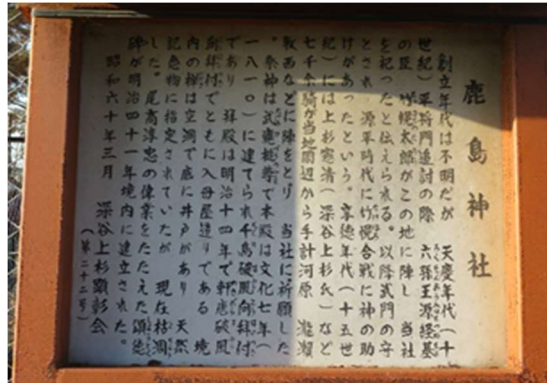 鹿島神社
創立年代は不明だが 天慶年代（十
世紀）平将門追討の際 六孫王源経基
の臣 竹幌太郎がこの地に陣し 当社
を祀ったと伝えられる。以降武門の守
とされ 源平時代に竹幌合戦に神の助
けがあったという。享徳年代（十五世
紀）には上杉憲清（深谷上杉氏）など
七千余騎が当地周辺から手計河原 瀧瀬
牧西などに陣をとり 当社に祈願した
。祭神は武甕槌尊で本殿は文化七年（
一八一〇）に建てられ千鳥破風向拝付
であり 拝殿は明治十四年で軒唐破風
向拝付でともに入母屋造りである 境
内の欅は空洞で底に井戸があり 天然
記念物に指定されていたが 現在枯凋
した。尾高淳忠の偉業をたたえた頌徳
碑が明治四十一年境内に建立された。
昭和六十年三月 深谷上杉顕彰会
（第二十二号）